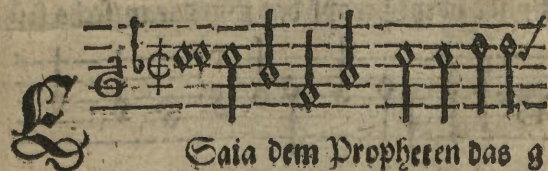 ESaia dem Propheten das g